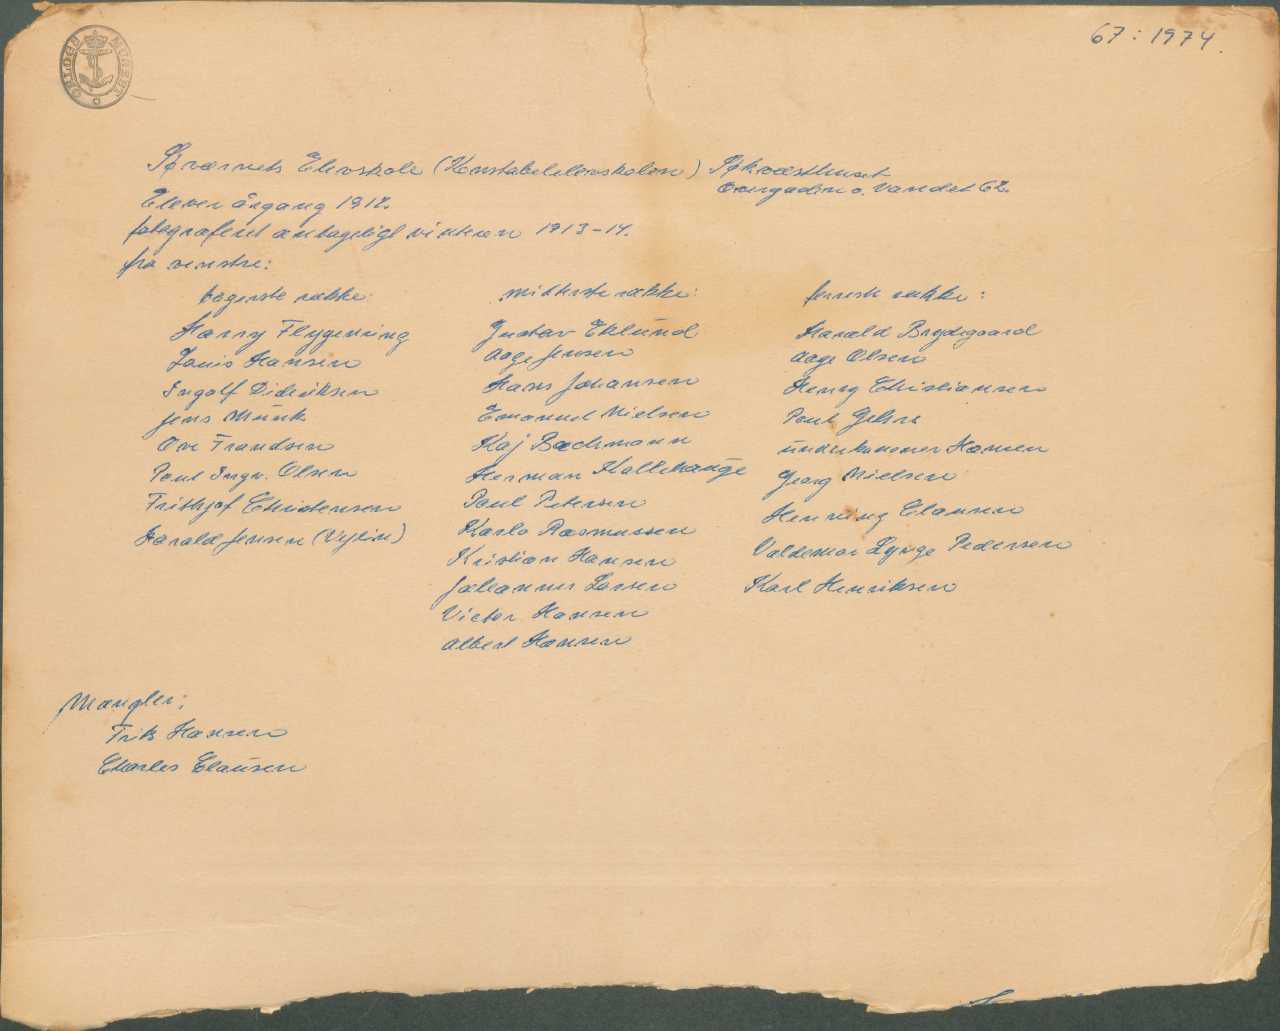 ORLOGSMUSEET
67: 1974.
Søværnets Elevskole (Konstabelelevskolen) Søkvæsthuset
Overgaden o. Vandet 62.
Elever årgang 1912.
fotograferet antageligt vinteren 1913-14.
fra venstre:
bagerste række:
Harry Flygenring
Louis Hansen
Ingolf Dideriksen
Jens Munk
Ove Frandsen
Poul Ingv. Olsen
Frithjof Christensen
Harald Jensen (Vejin)
midterste række:
Gustav Eklund
Aage Jensen
Hans Johansen
Emanuel Nielsen
Kaj Bachmann
Herman Kallehauge
Poul Petersen
Karlo Rasmussen
Kristian Hansen
Johannes Larsen
Victor Hansen
Albert Hansen
forreste række:
Harald Brydegaard
Aage Olsen
Henry Christiansen
Poul Gehrs
underkanoner Hansen
Georg Nielsen
Henning Clausen
Valdemar Lynge Pedersen
Karl Henriksen
Mangler:
Frits Hansen
Charles Clausen